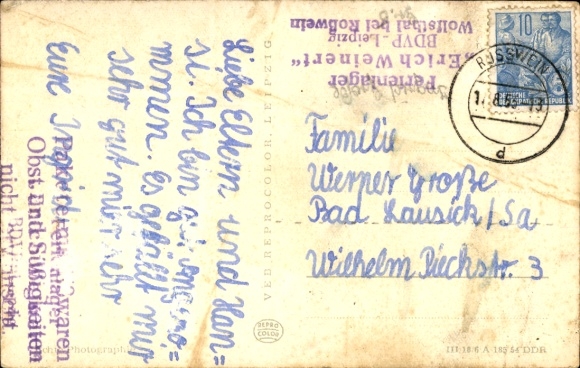 Liebe Eltern und Han=
si. Ich bin gut ange=
kommen. Es gefällt mir
sehr gut mir sehr
Eure Ingrid
Obst und Süßigkeiten
nicht
VEB REPROCOLOR LEIPZIG
REPRO
COLOR
Ferienlager
„Erich Weinert"
BDVP-Leipzig
Wolfsthal bei Roßwein
10
DEUTSCHE
DEMOKRATISCHE REPUBLIK
ROSSWEIN
d
Familie
Werner Große
Bad Lausick/Sa
Wilhelm Pieckstr. 3
III 18 6 A 185 54 DDR